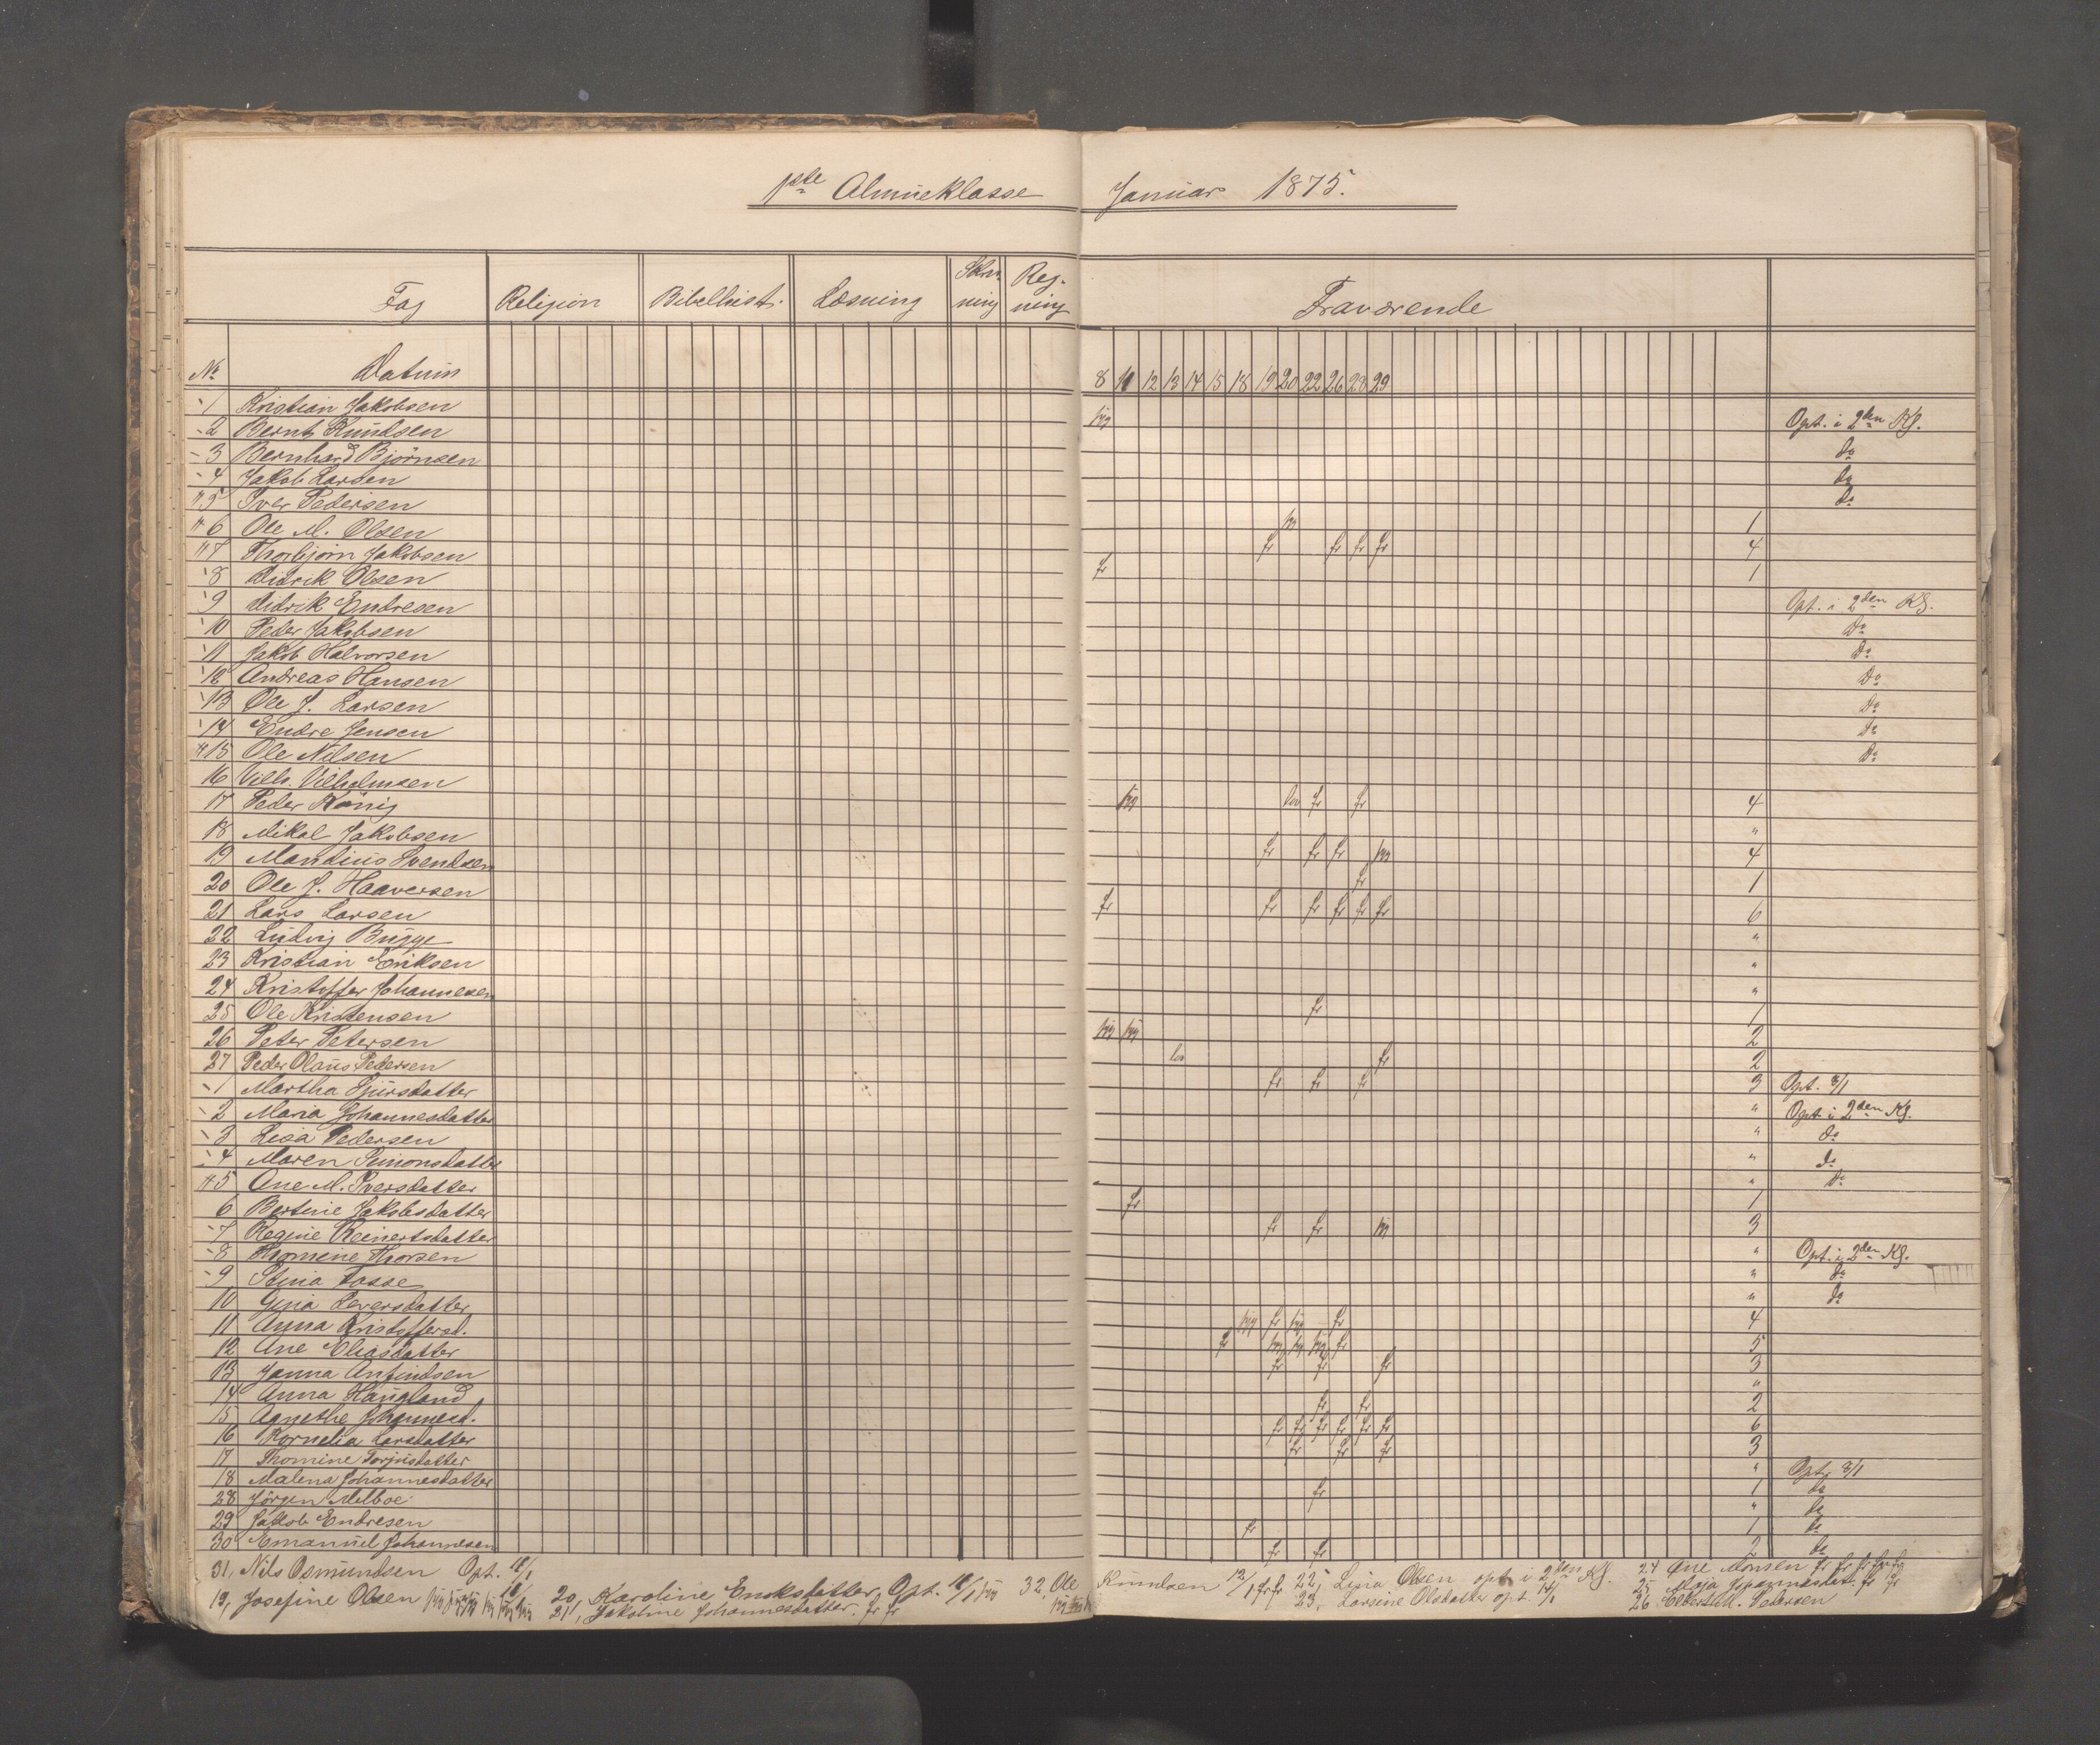 1ste Almueklasse Januar 1875.
Fag Religion Bibelhist. Læsning Skriv- ning Reg- ning Fraværende
No Datum 8 11 12 13 14 15 18 19 20 22 26 28 29
1 Kristian Jakobsen
2 Bernt Knudsen Opt. i 2den Kl.
3 Bernhard Björnsen do
4 Jakob Larsen do
5 Iver Pedersen do
6 Ole M. Olsen 1
7 Thorbjörn Jakobsen fr fr fr fr 4
8 Didrik Olsen fr 1
9 Didrik Endresen Opt. i 2den Kl.
10 Peder Jakobsen Do
11 Jakob Halvorsen Do
12 Andreas Hansen Do
13 Ole J. Larsen Do
14 Endre Jensen Do
15 Ole Nilsen Do
16 Vilh. Vilhelmsen
17 Peder König fr fr 4
18 Mikal Jakobsen "
19 Mandius Svendsen fr fr fr 4
20 Ole J. Haaversen fr 1
21 Lars Larsen fr fr fr fr fr fr 6
22 Ludvig Bugge "
23 Kristian Eriksen "
24 Kristoffer Johannesen "
25 Ole Kristensen fr 1
26 Peter Petersen 2
27 Peder Olaus Pedersen fr 2
1 Martha Sjursdatter fr fr fr 3 Opt. 8/1
2 Maria Johannesdatter " Opt. i 2den Kl.
3 Lisa Pedersen " do
4 Maren Simonsdatter " do
5 Ane M. Iversdatter " Do
6 Bertine Jakobsdatter fr 1
7 Regine Reinertsdatter fr fr 3
8 Thomine Thorsen " Opt. i 2den Kl.
9 Stina Fosse " do
10 Gina Leversdatter " do
11 Anna Kristoffersd. fr fr 4
12 Ane Eliasdatter fr fr 5
13 Janna Anfindsen fr fr fr 3
14 Anna Haugland "
15 Agnethe Johannesd. fr fr 2
16 Kornelia Larsdatter fr fr fr fr fr fr 6
17 Thomine Torjusdatter fr fr fr 3
18 Malena Johannesdatter " Opt. 8/1
28 Jörgen Melboe fr 1 do
29 Jakob Endresen " do
30 Emanuel Johannesen fr 1 do
fr fr 2 do
31, Nils Osmundsen Opt. 11/1
19, Josefine Olsen 20, Karoline Eriksdatter, Opt. 11/1 32, Ole Knudsen 12/1 fr fr 22, Lisa Olsen opt i 2den Kl. 24 Ane Monsen fr fr fr fr fr
21, Jakobine Johannesdatter. fr fr 23, Larsine Olsdatter opt. 14/1 25 Maja Johannesdatt. fr fr
26 Elbert M. Pedersen